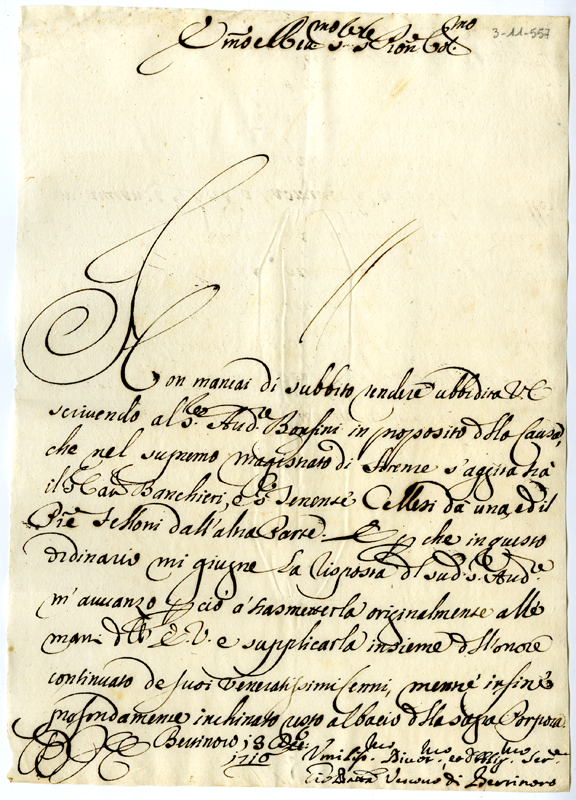 3-11-557
Em̃o e R̃mo Sig.re Sig.re Pron̄e Col.mo
Non mancai di subbito rendere ubbidita V. E.
scrivendo al S.r Aud.re Bonfini in proposito dello Causa,
che nel supremo magistrato di Firenze s'aggita trà
il S.r Cau. Banchieri, e S.r Tenente Cellesi da una, ed il
Pre Selloni dall'altra Parte. E p che in questo
ordinario mi giugne la risposta del sud.o S.r Aud.re
m'avvanzo p ciò à trasmetterla originalmente alle
mani dell' E. V. e supplicarla insieme dell'onore
continuato de suoi veneratissimi cenni, mentre infine
profondamente inchinato resto al bacio della sagra Porpora.
Bertinoro 18 Dbre
1716
Umiliss.mo Divot.mo ed Oblig.mo Ser.re
Gio. Batta Vescovo di Bertinoro